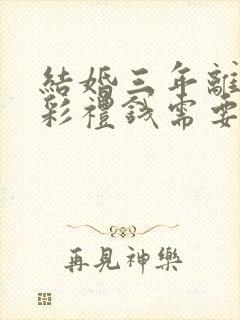 結婚三年離
彩禮錢需要
再見神樂